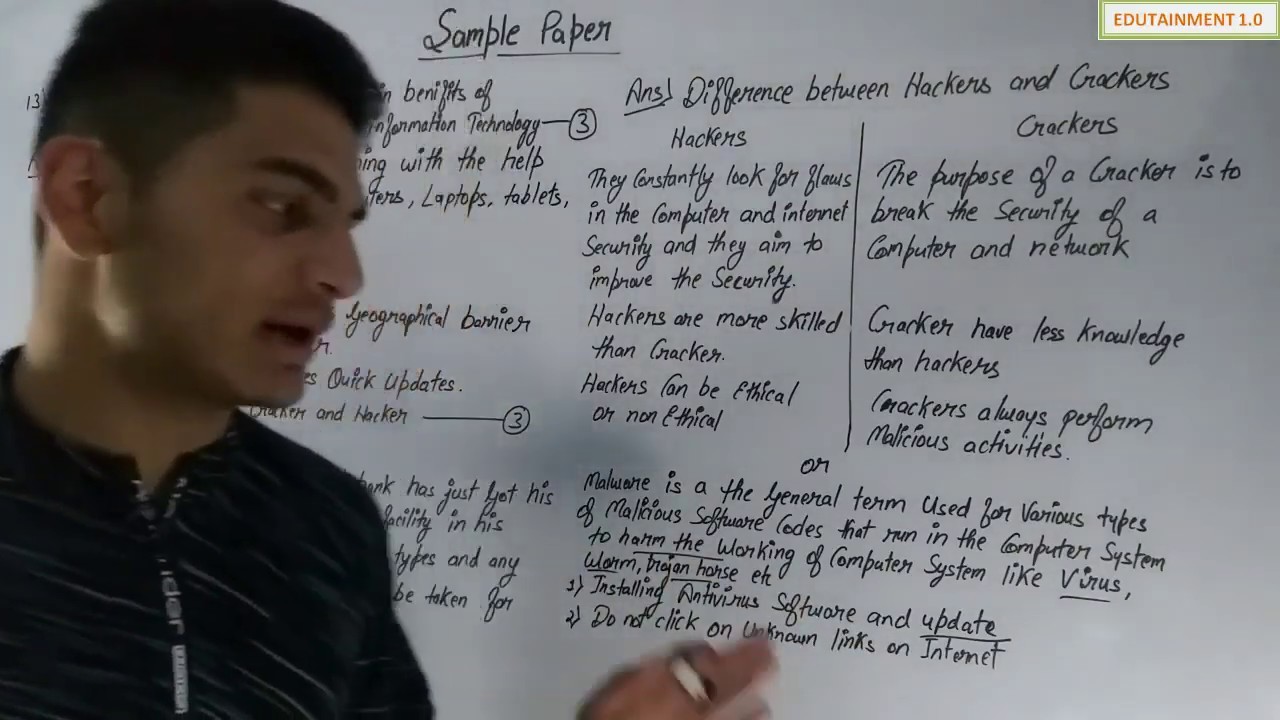 EDUTAINMENT 1.0
Sample Paper
13
benifits of
Information Technology — 3
with the help
Laptops, tablets,
Geographical barrier
Quick Updates.
Cracker and Hacker — 3
has just got his
facility in his
types and any
be taken for
Ans) Difference between Hackers and Crackers
Hackers
They Constantly look for flaws
in the Computer and internet
Security and they aim to
improve the Security.
Hackers are more skilled
than Cracker.
Hackers Can be Ethical
or non Ethical
Crackers
The purpose of a Cracker is to
break the Security of a
Computer and network
Cracker have less knowledge
than hackers
Crackers always perform
Malicious activities.
or
Malware is a the General term Used for Various types
of Malicious Software Codes that run in the Computer System
to harm the Working of Computer System like Virus,
Worm, trojan horse etc
1) Installing Antivirus Software and update
2) Do not click on Unknown links on Internet